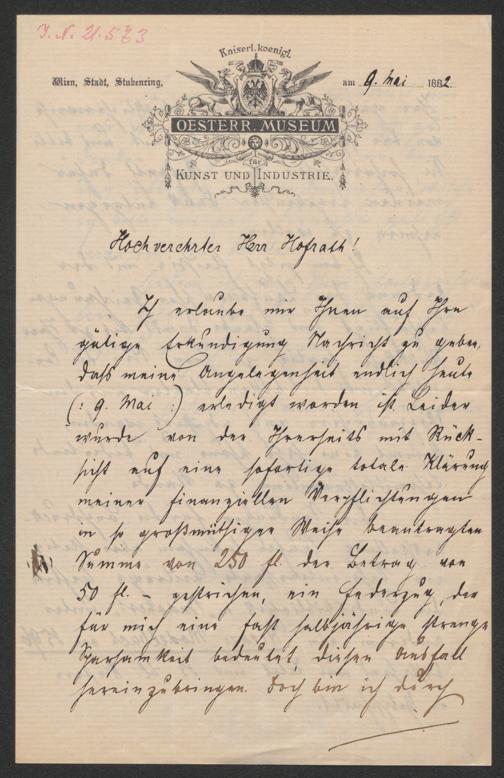 J. N. 21.573
Kaiserl. koenigl.
Wien, Stadt, Stubenring,
am 9. Mai 1882.
OESTERR. MUSEUM
für
KUNST UND INDUSTRIE.
Hochverehrter Herr Hofrath!
Ich erlaube mir Ihnen auf Ihre
gütige Erkundigung Nachricht zu geben,
dass meine Angelegenheit endlich heute
(: 9. Mai :) erledigt worden ist. Leider
wurde von der Ihrerseits mit Rück-
sicht auf eine sofortige totale Klärung
meiner finanziellen Verpflichtungen
in so großmüthiger Weise beantragten
Summe von 250 fl. der Betrag von
50 fl. – gestrichen, ein Federzug, der
für mich eine fast halbjährige strenge
Sparsamkeit bedeutet, diesen Ausfall
hereinzubringen. Doch bin ich durch